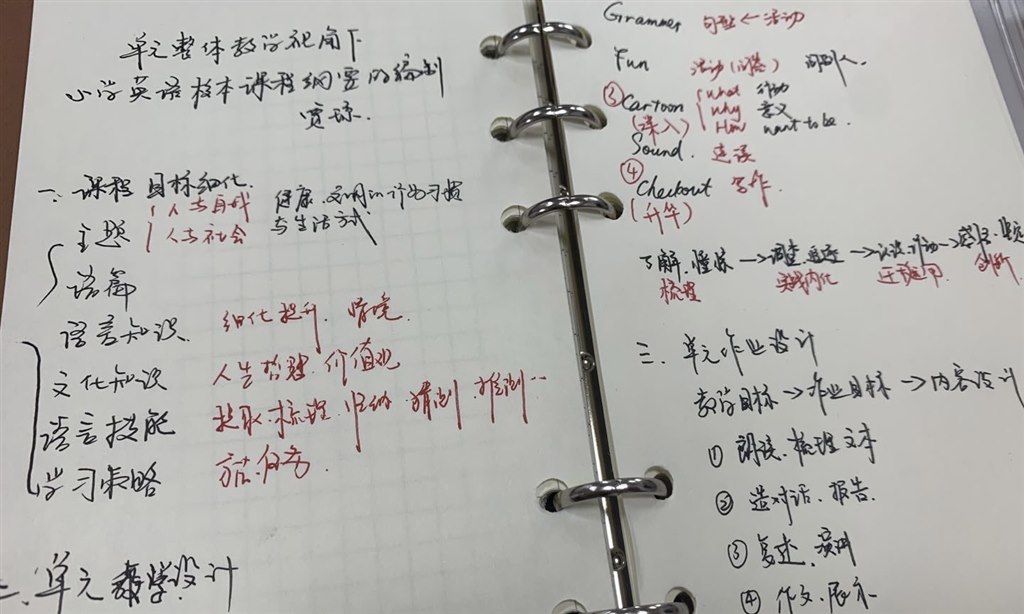 单元整体教学视角下
小学英语校本课程纲要的编制
贾琼.
一、课程 目标细化.
主题 人与自我 健康、文明的行为习惯
人与社会 与生活方式
语篇
语言知识. 细化提升. 情境.
文化知识 人生哲理. 价值观
语言技能 提取. 梳理. 归纳. 猜测. 推测…
学习策略 方法.任务.
二、单元教学设计
Grammer 句型←活动
Fun 活动(问答) 问别人.
③Cartoon what 行动
(深入) why 意义
How want to be.
Sound. 连读
④Checkout 写作.
(升华)
了解.
梳理 实践内化 迁移运用 创新
三、单元作业设计
教学目标→作业目标→内容设计
① 朗读、梳理文本
② 造对话、报告.
③ 复述、演讲
④ 作文、展示